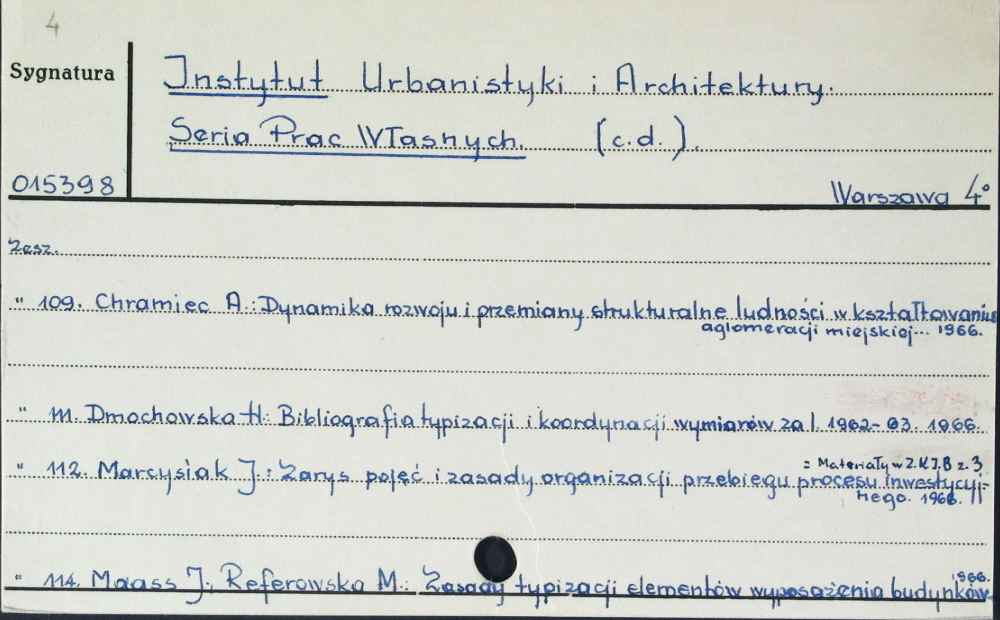 4
Sygnatura
Instytut Urbanistyki i Architektury.
Seria Prac Własnych. (c.d.).
015398
Warszawa 4°
Zesz.
" 109. Chramiec A.: Dynamika rozwoju i przemiany strukturalne ludności w kształtowaniu
aglomeracji miejskiej... 1966.
" 111. Dmochowska H.: Bibliografia typizacji i koordynacji wymiarów za l. 1962-63. 1966.
= Materiały w Z.K.J.B z. 3
" 112. Marcysiak J.: Zarys pojęć i zasady organizacji przebiegu procesu inwestycyj-
nego. 1966.
1966.
" 114. Maass J., Referowska M.: Zasady typizacji elementów wyposażenia budynków.